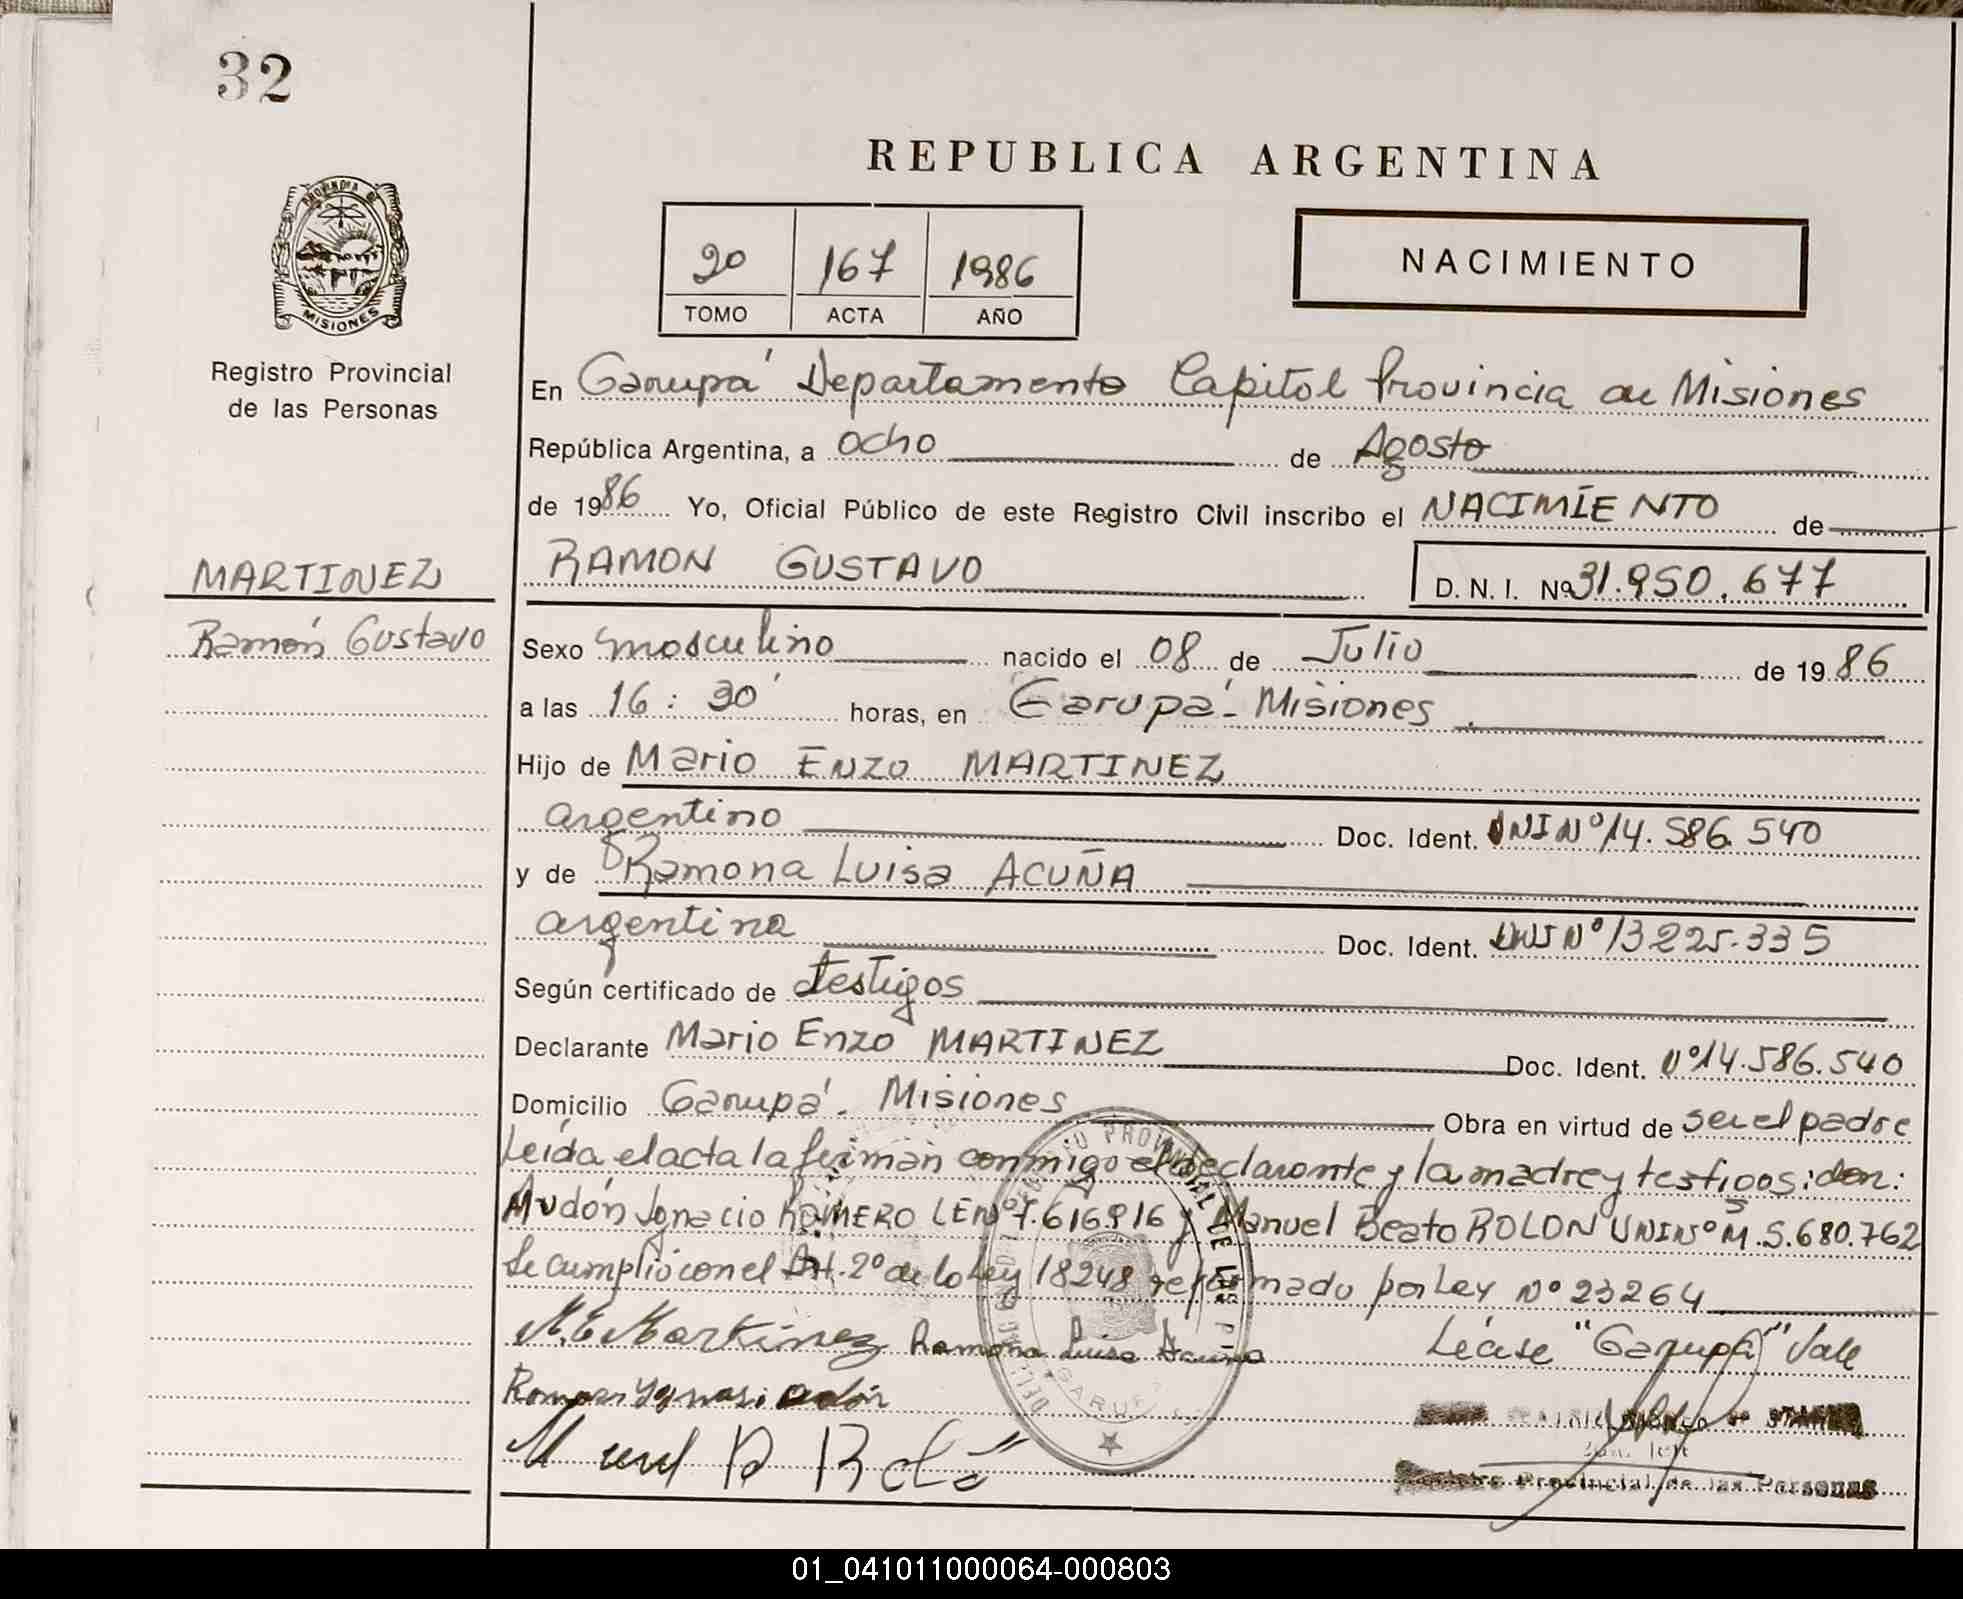 32
REPUBLICA ARGENTINA
PROVINCIA DE
MISIONES
Registro Provincial
de las Personas
20 167 1986
TOMO ACTA AÑO
NACIMIENTO
En Garupá Departamento Capital Provincia de Misiones
República Argentina, a ocho de Agosto
de 1986 Yo, Oficial Público de este Registro Civil inscribo el NACIMIENTO de
MARTINEZ
Ramón Gustavo
RAMON GUSTAVO D. N. I. Nº 31.950.677
Sexo masculino nacido el 08 de Julio de 1986
a las 16:30' horas, en Garupá - Misiones.
Hijo de Mario Enzo MARTINEZ
argentino Doc. Ident. DNI Nº 14.586.540
y de Ramona Luisa ACUÑA
argentina Doc. Ident. DNI Nº 13.225.335
Según certificado de testigos
Declarante Mario Enzo MARTINEZ Doc. Ident. Nº 14.586.540
Domicilio Garupá - Misiones Obra en virtud de ser el padre
Leída el acta la firman conmigo el declarante y la madre y testigos: don:
Ignacio ROMERO LE Nº 7.616.916 y Manuel Beato ROLON DNI Nº M. 5.680.762
Se cumplio con el Art. 2º de la Ley 18248 reformado por Ley Nº 23264
M. E. Martinez Ramona Luisa Acuña Léase "Garupá" Vale
Registro Provincial de las Personas
01_041011000064-000803